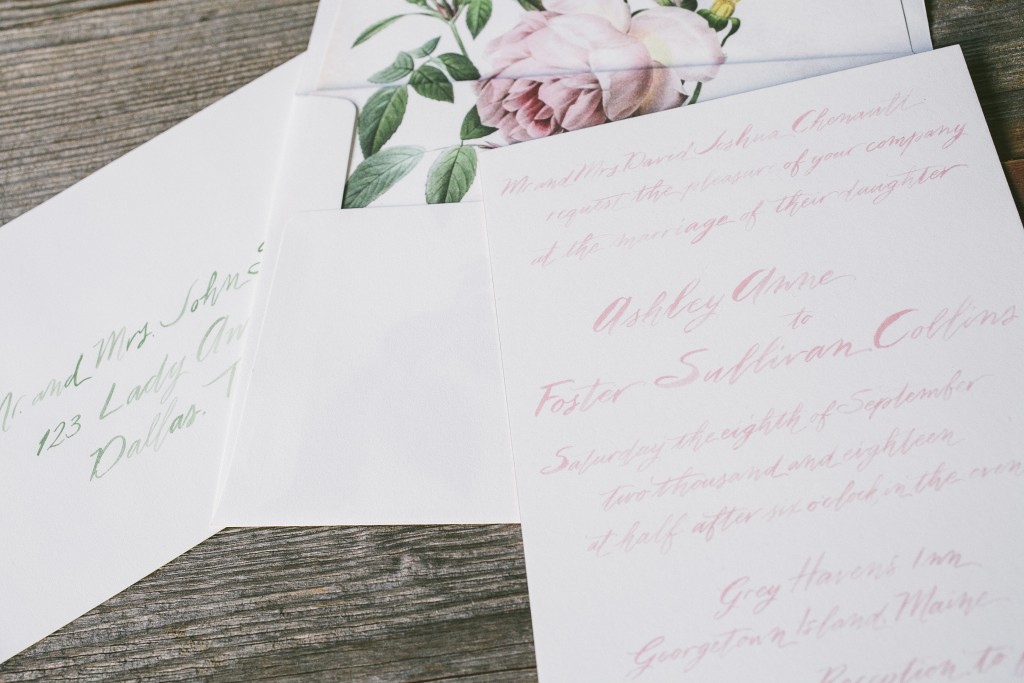 Mr. and Mrs. John
123 Lady
Dallas.
Mr and Mrs David Joshua Chenault
request the pleasure of your company
at the marriage of their daughter
Ashley Anne
to
Foster Sullivan Collins
Saturday the eighth of September
two thousand and eighteen
at half after six o'clock in the
Grey Havens Inn
Georgetown Island, Maine
Reception to